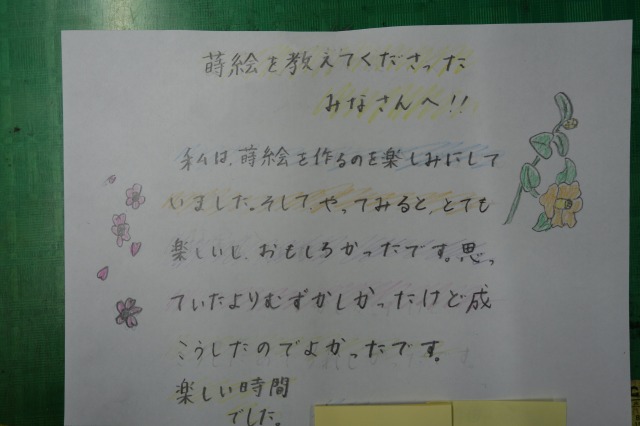 蒔絵を教えてくださった
みなさんへ!!
私は、蒔絵を作るのを楽しみにして
いました。そして、やってみると、とても
楽しいし、おもしろかったです。思っ
ていたよりむずかしかったけど成
こうしたのでよかったです。
楽しい時間
でした。